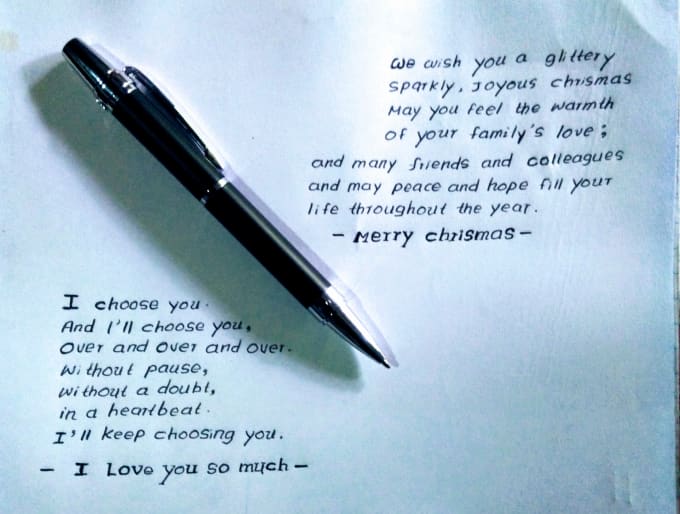 We wish you a glittery
sparkly, Joyous chrismas
May you feel the warmth
of your family's love;
and many friends and colleagues
and may peace and hope fill your
life throughout the year.
- Merry chrismas -
I choose you.
And I'll choose you,
Over and over and over.
Without pause,
without a doubt,
in a heartbeat.
I'll keep choosing you.
- I Love you so much -